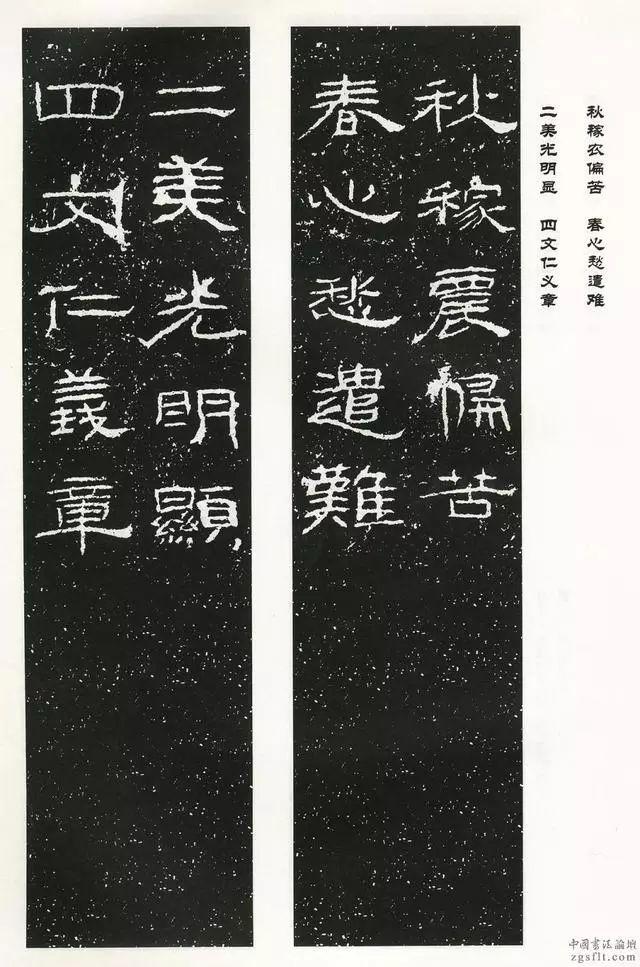 秋稼农偏苦 春心愁遣难
二美光明显 四文仁义章
秋稼農偏苦
春心愁遣難
二美光明顯
四文仁義章
中國書法論壇
zgsflt.com